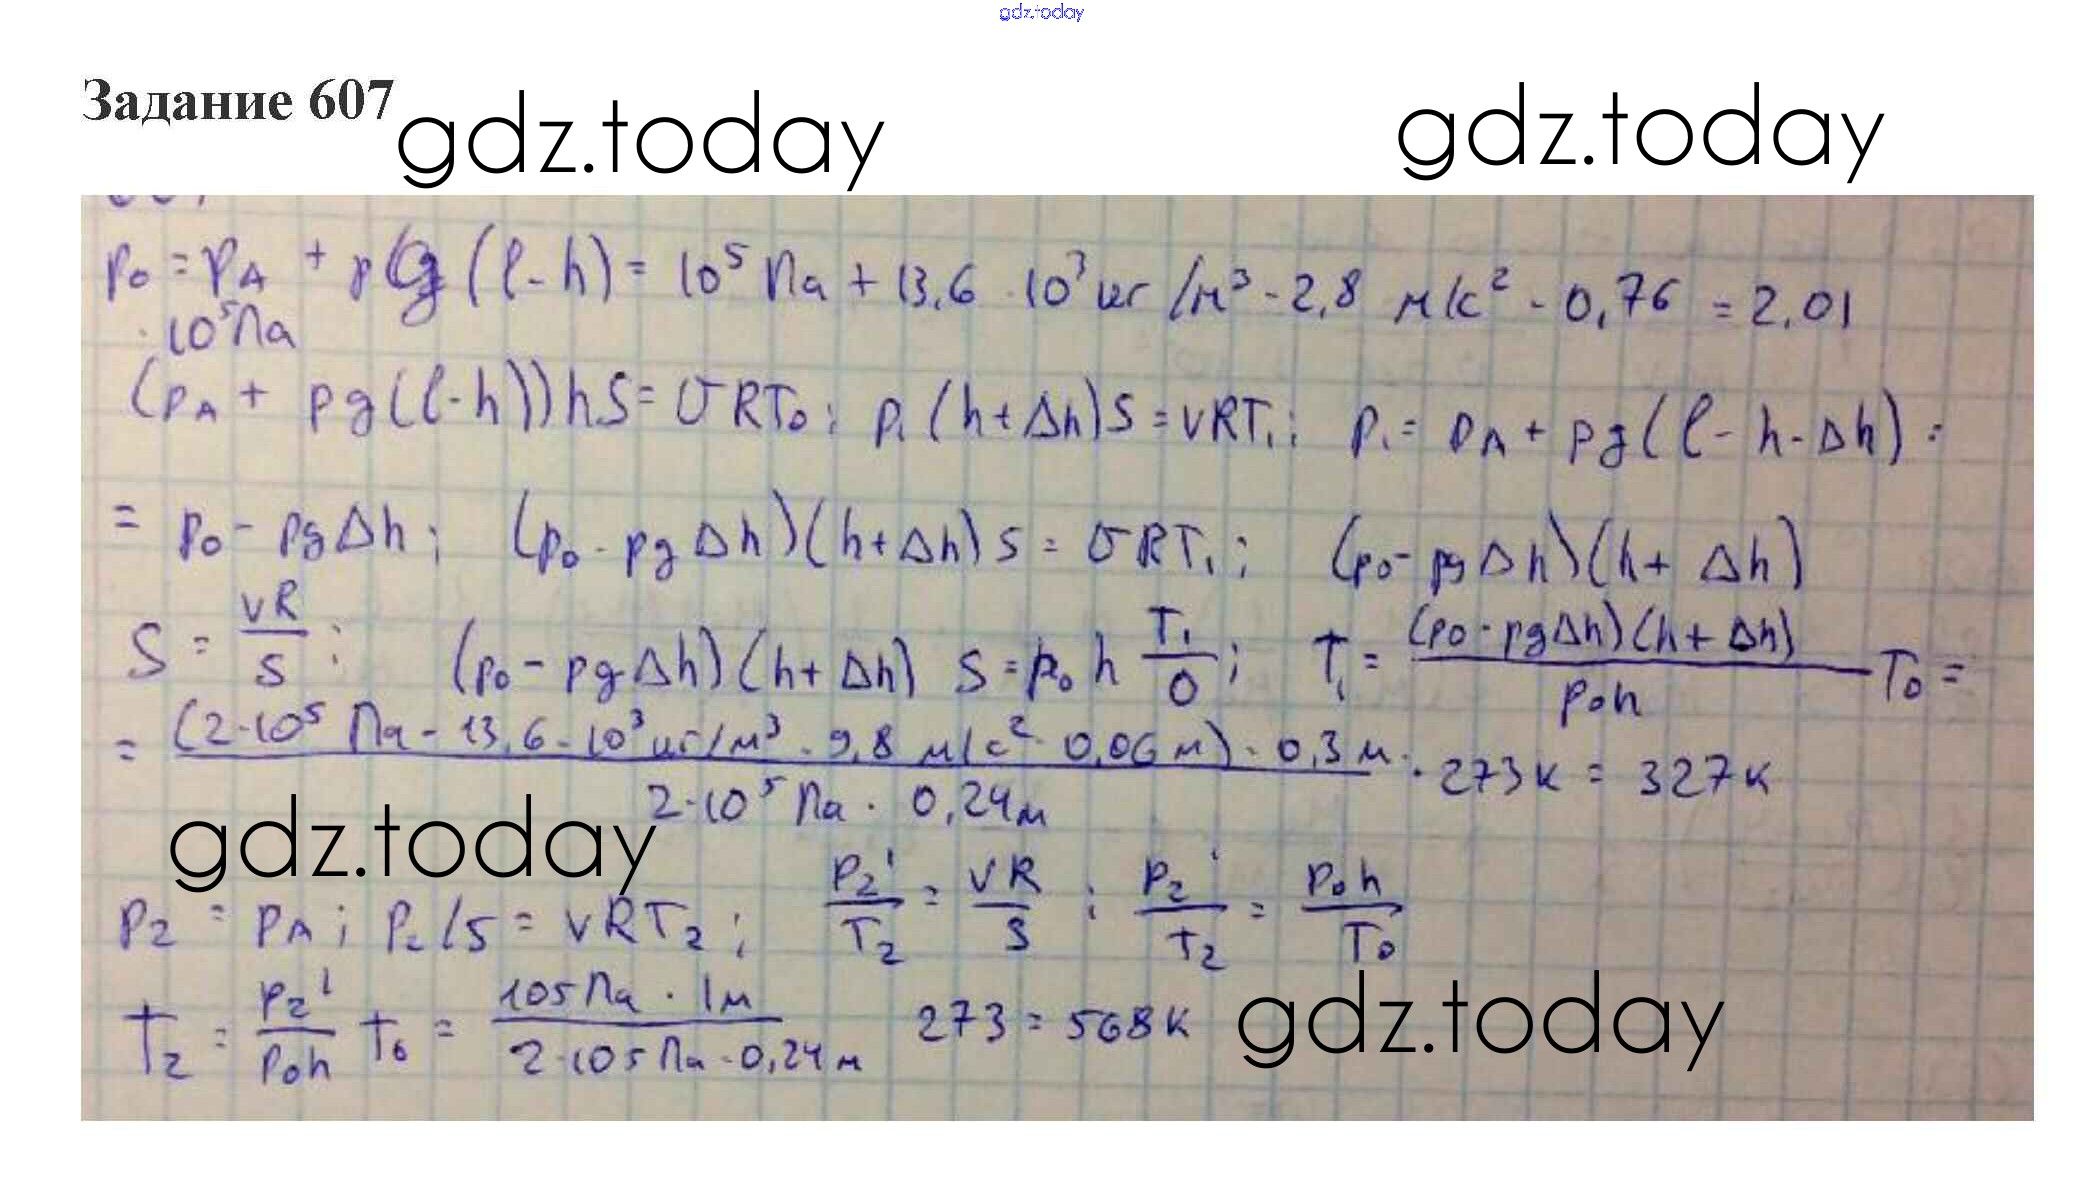 gdz.today
Задание 607
gdz.today
gdz.today
p₀ = p_A + ρg(l-h) = 10⁵ Па + 13,6 · 10³ кг/м³ - 2,8 м/с² - 0,76 = 2,01
· 10⁵ Па
(p_A + ρg(l-h))hS = υRT₀; p₁(h+Δh)S = νRT₁; p₁ = p_A + ρg(l-h-Δh) =
= p₀ - ρgΔh; (p₀ - ρgΔh)(h+Δh)S = υRT₁; (p₀ - ρgΔh)(h+Δh)
S = νR/S; (p₀ - ρgΔh)(h+Δh) S = p₀h T₁/0; T₁ = (p₀ - ρgΔh)(h+Δh)/p₀h T₀ =
= (2·10⁵ Па - 13,6 - 10³ кг/м³ · 9,8 м/с² · 0,06 м) · 0,3 м / 2·10⁵ Па · 0,24 м · 273 К = 327 К
gdz.today
p₂ = p_A; p₂lS = νRT₂; p₂l/T₂ = νR/S; p₂l/T₂ = p₀h/T₀
T₂ = p₂l/p₀h T₀ = 105 Па · 1 м / 2·105 Па - 0,24 м 273 = 568 К
gdz.today